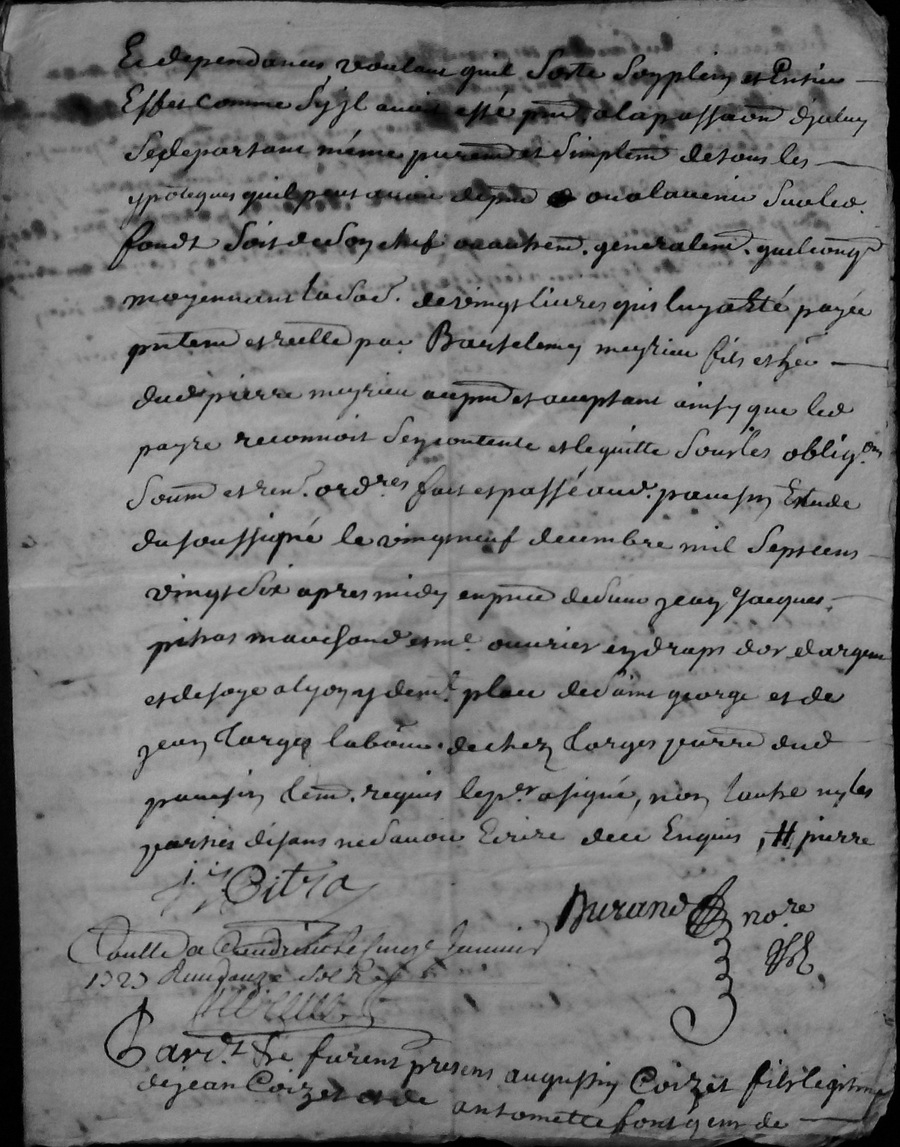 Et dependances voulant quil Sorte Son plein et Entier
Effet comme Sy yl avoit esté pnt. a la passaon d'jceluy
Se departant même purem et Simplem de tous les
ypoteques quil peut avoir apnt ou a lavenir Sur led.
fondt Soit de Son chef ou autrem. generalem. quelconq
moyennant la So. de vingt livres quis luy a esté payée
pntem et reelle par Bartelemy meyrieu fils et her
dud pierre meyrieu apnt et acceptant ainsy que led
payre reconnoit Sen contente et le quitte Sous les obligons
Soum et ren. ordres fait et passé aud. Etude
du soussigné le vingt neuf decembre mil Sept cens
vingt Six apres midy en pnce de Sieur jean Jacques
pitras marchand et me. ouvrier en draps dor dargent
et de soye a lyon y demt place de Saint george et de
jean Larges labour. de chez Larges parre dud
tem. requis le pr a signé, non lautre ny les
parties disans ne Savoir Ecrire de ce Enquis, # pierre
J J Pitra
Durand nore
Controllé a le janvier
1727 Reçu douze Sols
Pardt Se furent presens augustin Coizet fils legitime
de jean Coizet et de antoinette font de